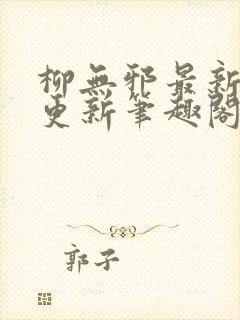 柳無邪最新
更新筆趣閣
郭子